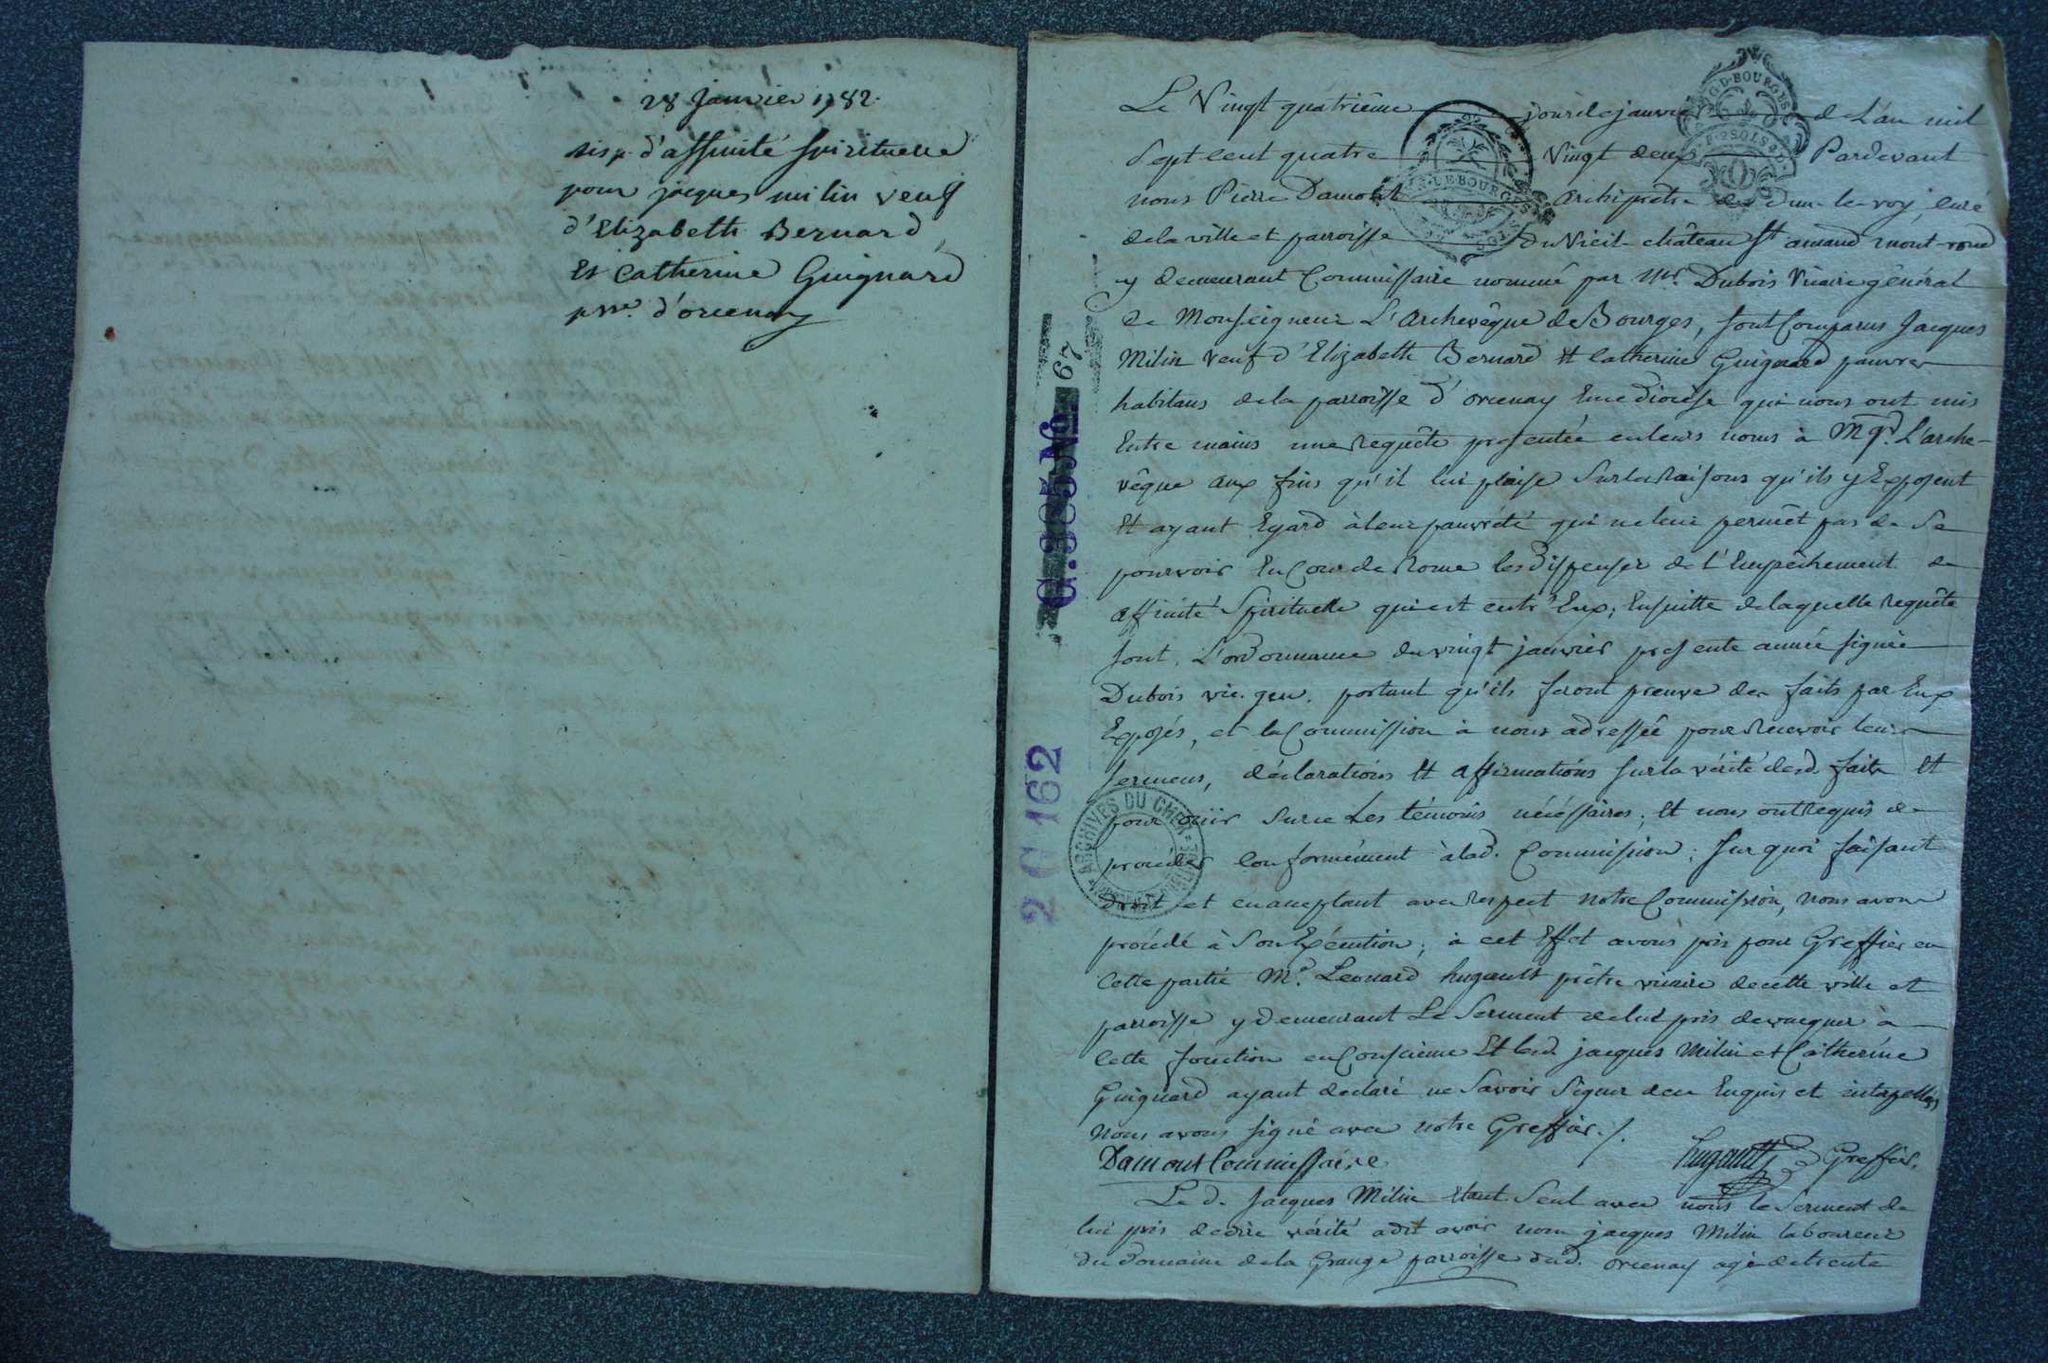 28 Janvier 1782.
disp. d'affinité spirituelle
pour jacques milin veuf
d'Elizabeth Bernard
Et Catherine Guignard
psse. d'orcenay
Le Vingt quatrième jour de janvier de L'an mil
Sept cent quatre Vingt deux Pardevant
nous Pierre Damour Archiprêtre de Dun-le-roy, curé
de la ville et parroisse du Vieil château St amand mont-rond
y demeurant Commissaire nommé par Mr. Dubois Vicaire général
de Monseigneur L'Archevêque de Bourges, sont Comparus Jacques
Milin veuf d'Elizabeth Bernard Et Catherine Guignard pauvres
habitans de la parroisse d'orcenay En ce Diocèse qui nous ont mis
Entre mains une Requête présentée en leurs noms à Mgr. L'arche-
vêque aux fins qu'il lui plaise Sur les Raisons qu'ils y Exposent
Et ayant Egard à leur pauvreté qui ne leur permêt pas de Se
pourvoir En Cour de Rome les Dispenser de l'Empêchement de
affinité Spirituelle qui est entr'Eux; Ensuitte de laquelle Requête
sont L'ordonnance du vingt janvier presente année signée
Dubois vic. gen. portant qu'ils feront preuve des faits par Eux
Exposés, et la Commission à nous adressée pour Recevoir leurs
sermens, déclarations Et affirmations sur la vérité desd. faits Et
pour ouir Sur ce Les témoins nécéssaires; Et nous ont Requis de
proceder Conformément à lad. Commission; Sur quoi faisant
Droit et en acceptant avec Respect notre Commission, nous avons
procédé à Son Exécution; à cet Effet avons pris pour Greffier en
Cette partie Me. Leonard hugault prêtre vicaire de cette ville et
parroisse y demeurant Le Serment de lui pris de vacquer à
Cette fonction en Conscience Et lesd. jacques Milin et Catherine
Guignard ayant declaré ne Savoir Signer de ce Enquis et interpellés
Nous avons signé avec notre Greffier./.
Damour Commissaire hugault Greffier.
Le d. Jacques Milin Etant Seul avec nous le Serment de
lui pris de dire vérité a dit avoir nom jacques Milin laboureur
du Domaine de la Grange parroisse dud. orcenay agé de trente
G. 305 No. 67
2 G 162
ARCHIVES DU CHER